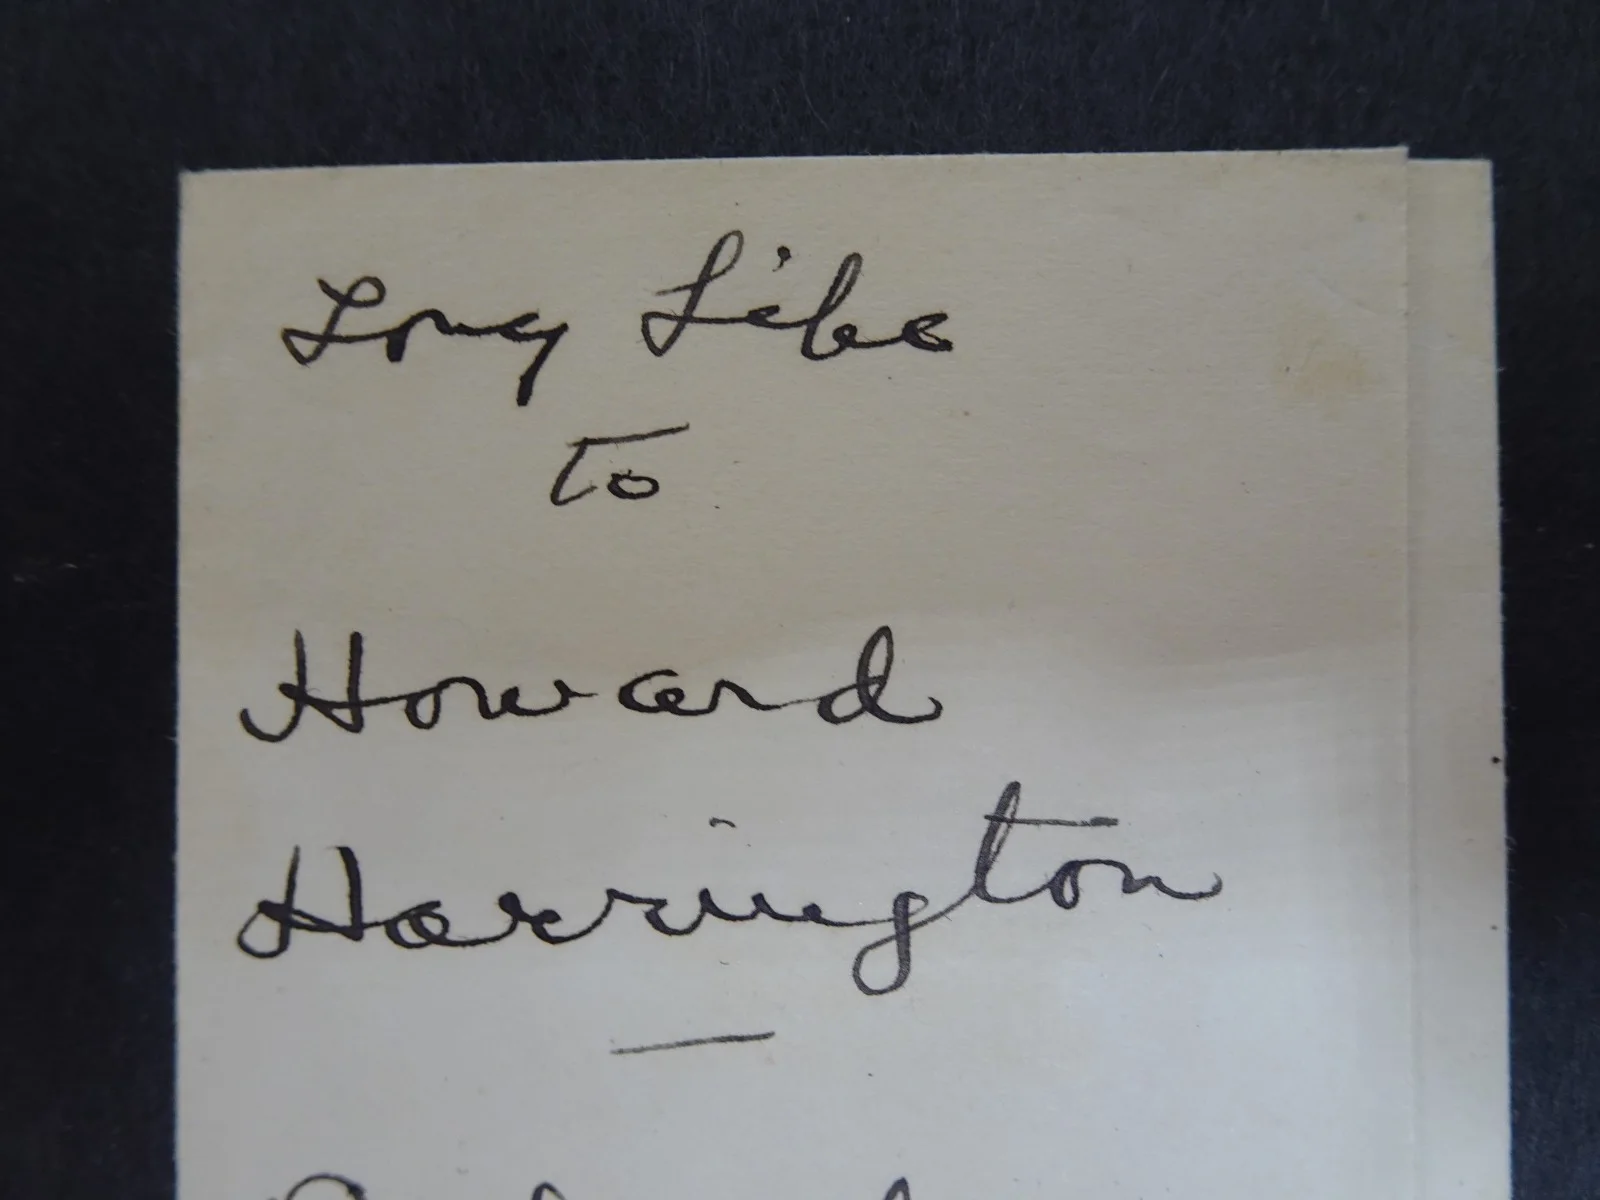 Long Life
to
Howard
Harrington